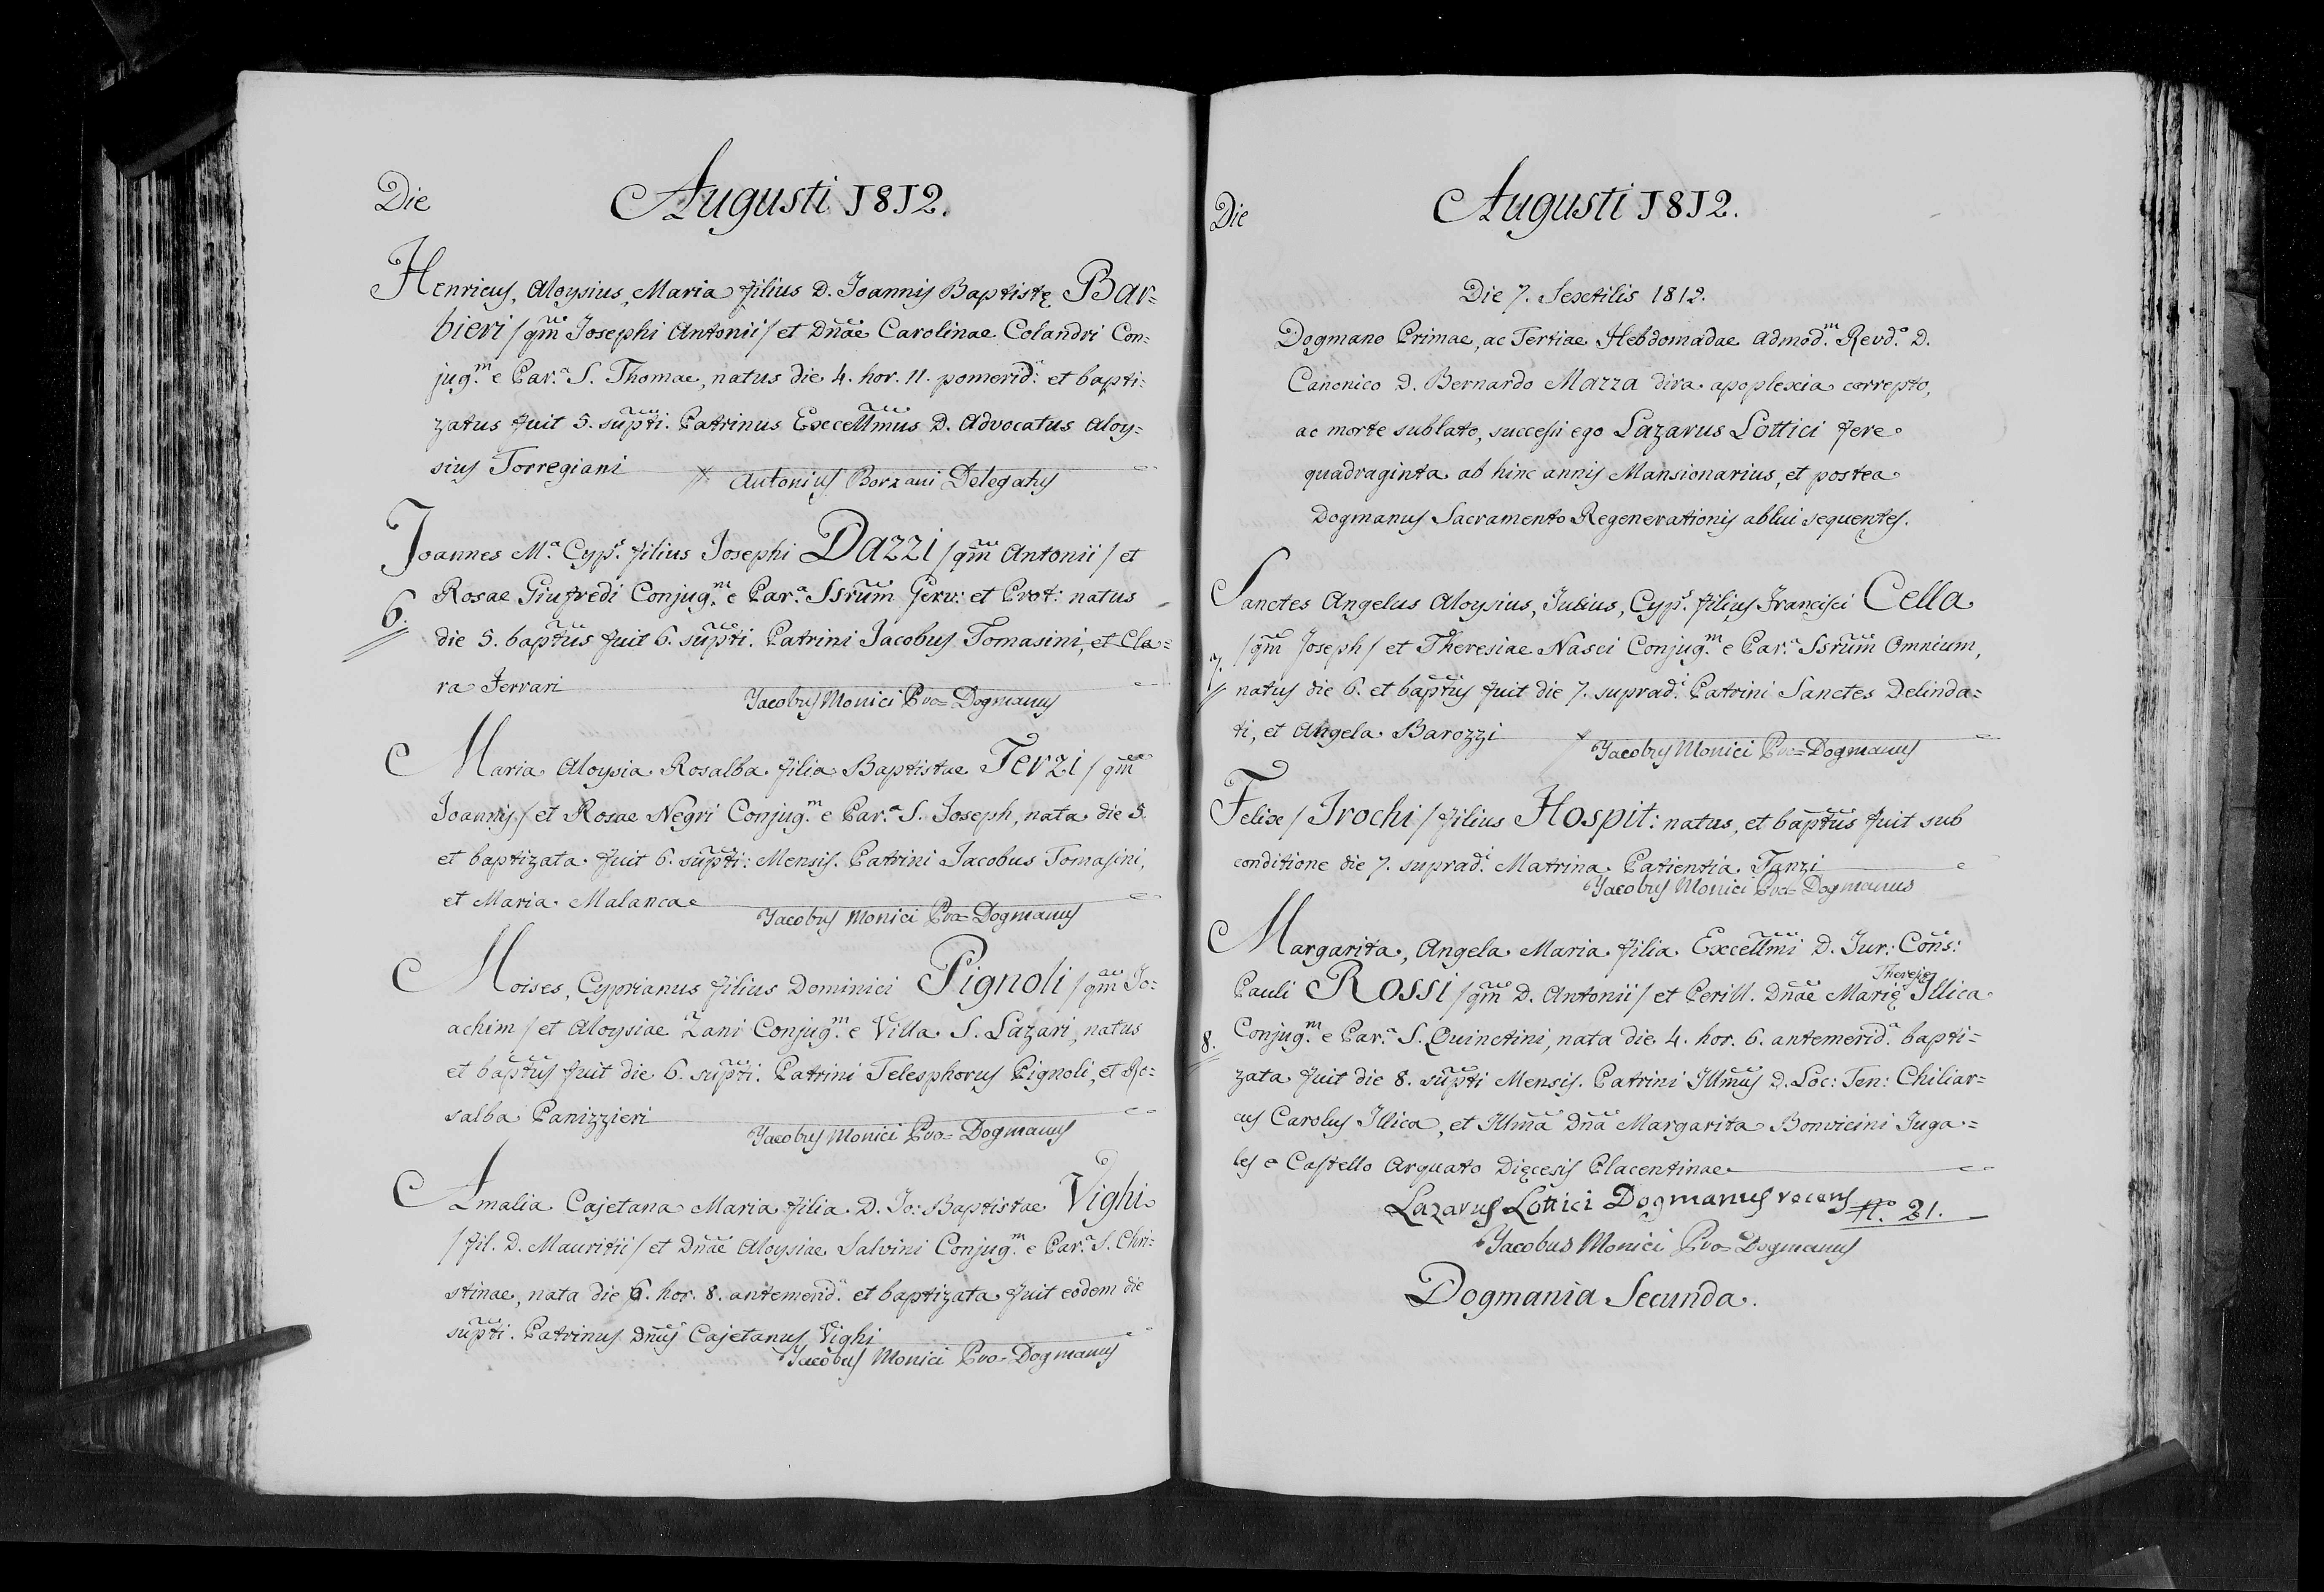 Die
Augusti 1812.
Henricus, Aloysius, Maria filius D. Joannis Baptistę Bar=
bieri / qm̃ Josephi Antonii / et Dnãe Carolinae Colandri Con=
jug.m e Par.a S. Thomae, natus die 4. hor. 11. pomerid.a et bapti=
zatus fuit 5. sup̃ti. Patrinus Excellm̃us D. Advocatus Aloy=
sius Torregiani
Antonius Borzani Delegatus
Joannes M.a Cyp.s filius Josephi Dazzi / qm̃ Antonii / et
6.
Rosae Giufredi Conjug.m e Par.a Ssrũm Gerv: et Prot: natus
die 5. bap̃tus fuit 6. sup̃ti. Patrini Jacobus Tomasini, et Cla=
ra Ferrari
Jacobus Monici Pro=Dogmanus
Maria Aloysia Rosalba filia Baptistae Terzi / qm̃
Joannis / et Rosae Negri Conjug.m e Par.a S. Joseph, nata die 5.
et baptizata fuit 6. sup̃ti: Mensis. Patrini Jacobus Tomasini,
et Maria Malancae
Jacobus Monici Pro=Dogmanus
Moises, Cyprianus filius Dominici Pignoli / qm̃ Jo=
achim / et Aloysiae Zani Conjug.m e Villa S. Lazari, natus
et bap̃tus fuit die 6. sup̃ti. Patrini Telesphorus Pignoli, et Ro=
salba Panizzieri
Jacobus Monici Pro=Dogmanus
Amalia Cajetana Maria filia D. Jo: Baptistae Vighi
/ fil. D. Mauritii / et Dnãe Aloysiae Salvini Conjug.m e Par.a S. Chri=
stinae, nata die 6. hor. 8. antemerid.a et baptizata fuit eodem die
sup̃ti. Patrinus Dnũs Cajetanus Vighi
Jacobus Monici Pro=Dogmanus
Die
Augusti 1812.
Die 7. Sextilis 1812.
Dogmano Primae, ac Tertiae Hebdomadae admod.m Revd.o D.
Canonico D. Bernardo Mazza dira apoplexia correpto,
ac morte sublato, successi ego Lazarus Lottici fere
quadraginta ab hinc annis Mansionarius, et postea
Dogmanus Sacramento Regenerationis ablui sequentes.
Sanctes Angelus Aloysius, Julius, Cyp.s filius Francisci Cella
/ qm̃ Joseph / et Theresiae Nasci Conjug.m e Par.a Ssrũm Omnium,
7.
natus die 6. et bap̃tus fuit die 7. suprad.i Patrini Sanctes Delinda=
ti, et Angela Barozzi
Jacobus Monici Pro=Dogmanus
Felix / Trochi / filius Hospit: natus, et bap̃tus fuit sub
conditione die 7. suprad.i Matrina Patientia Tanzi
Jacobus Monici Pro=Dogmanus
Margarita, Angela Maria filia Excellm̃i D. Jur: Coñs:
Theresię
Pauli Rossi / qm̃ D. Antonii / et Perill. Dnãe Marię Illica
8.
Conjug.m e Par.a S. Quinctini, nata die 4. hor. 6. antemerid.a bapti=
zata fuit die 8. sup̃ti Mensis. Patrini Illm̃us D. Loc: Ten: Chiliar=
cus Carolus Illica, et Illm̃a Dnã Margarita Bonvicini Juga=
les e Castello Arquato Dięcesis Placentinae
Lazarus Lottici Dogmanus recens
n.o 21.
Jacobus Monici Pro=Dogmanus
Dogmania Secunda.